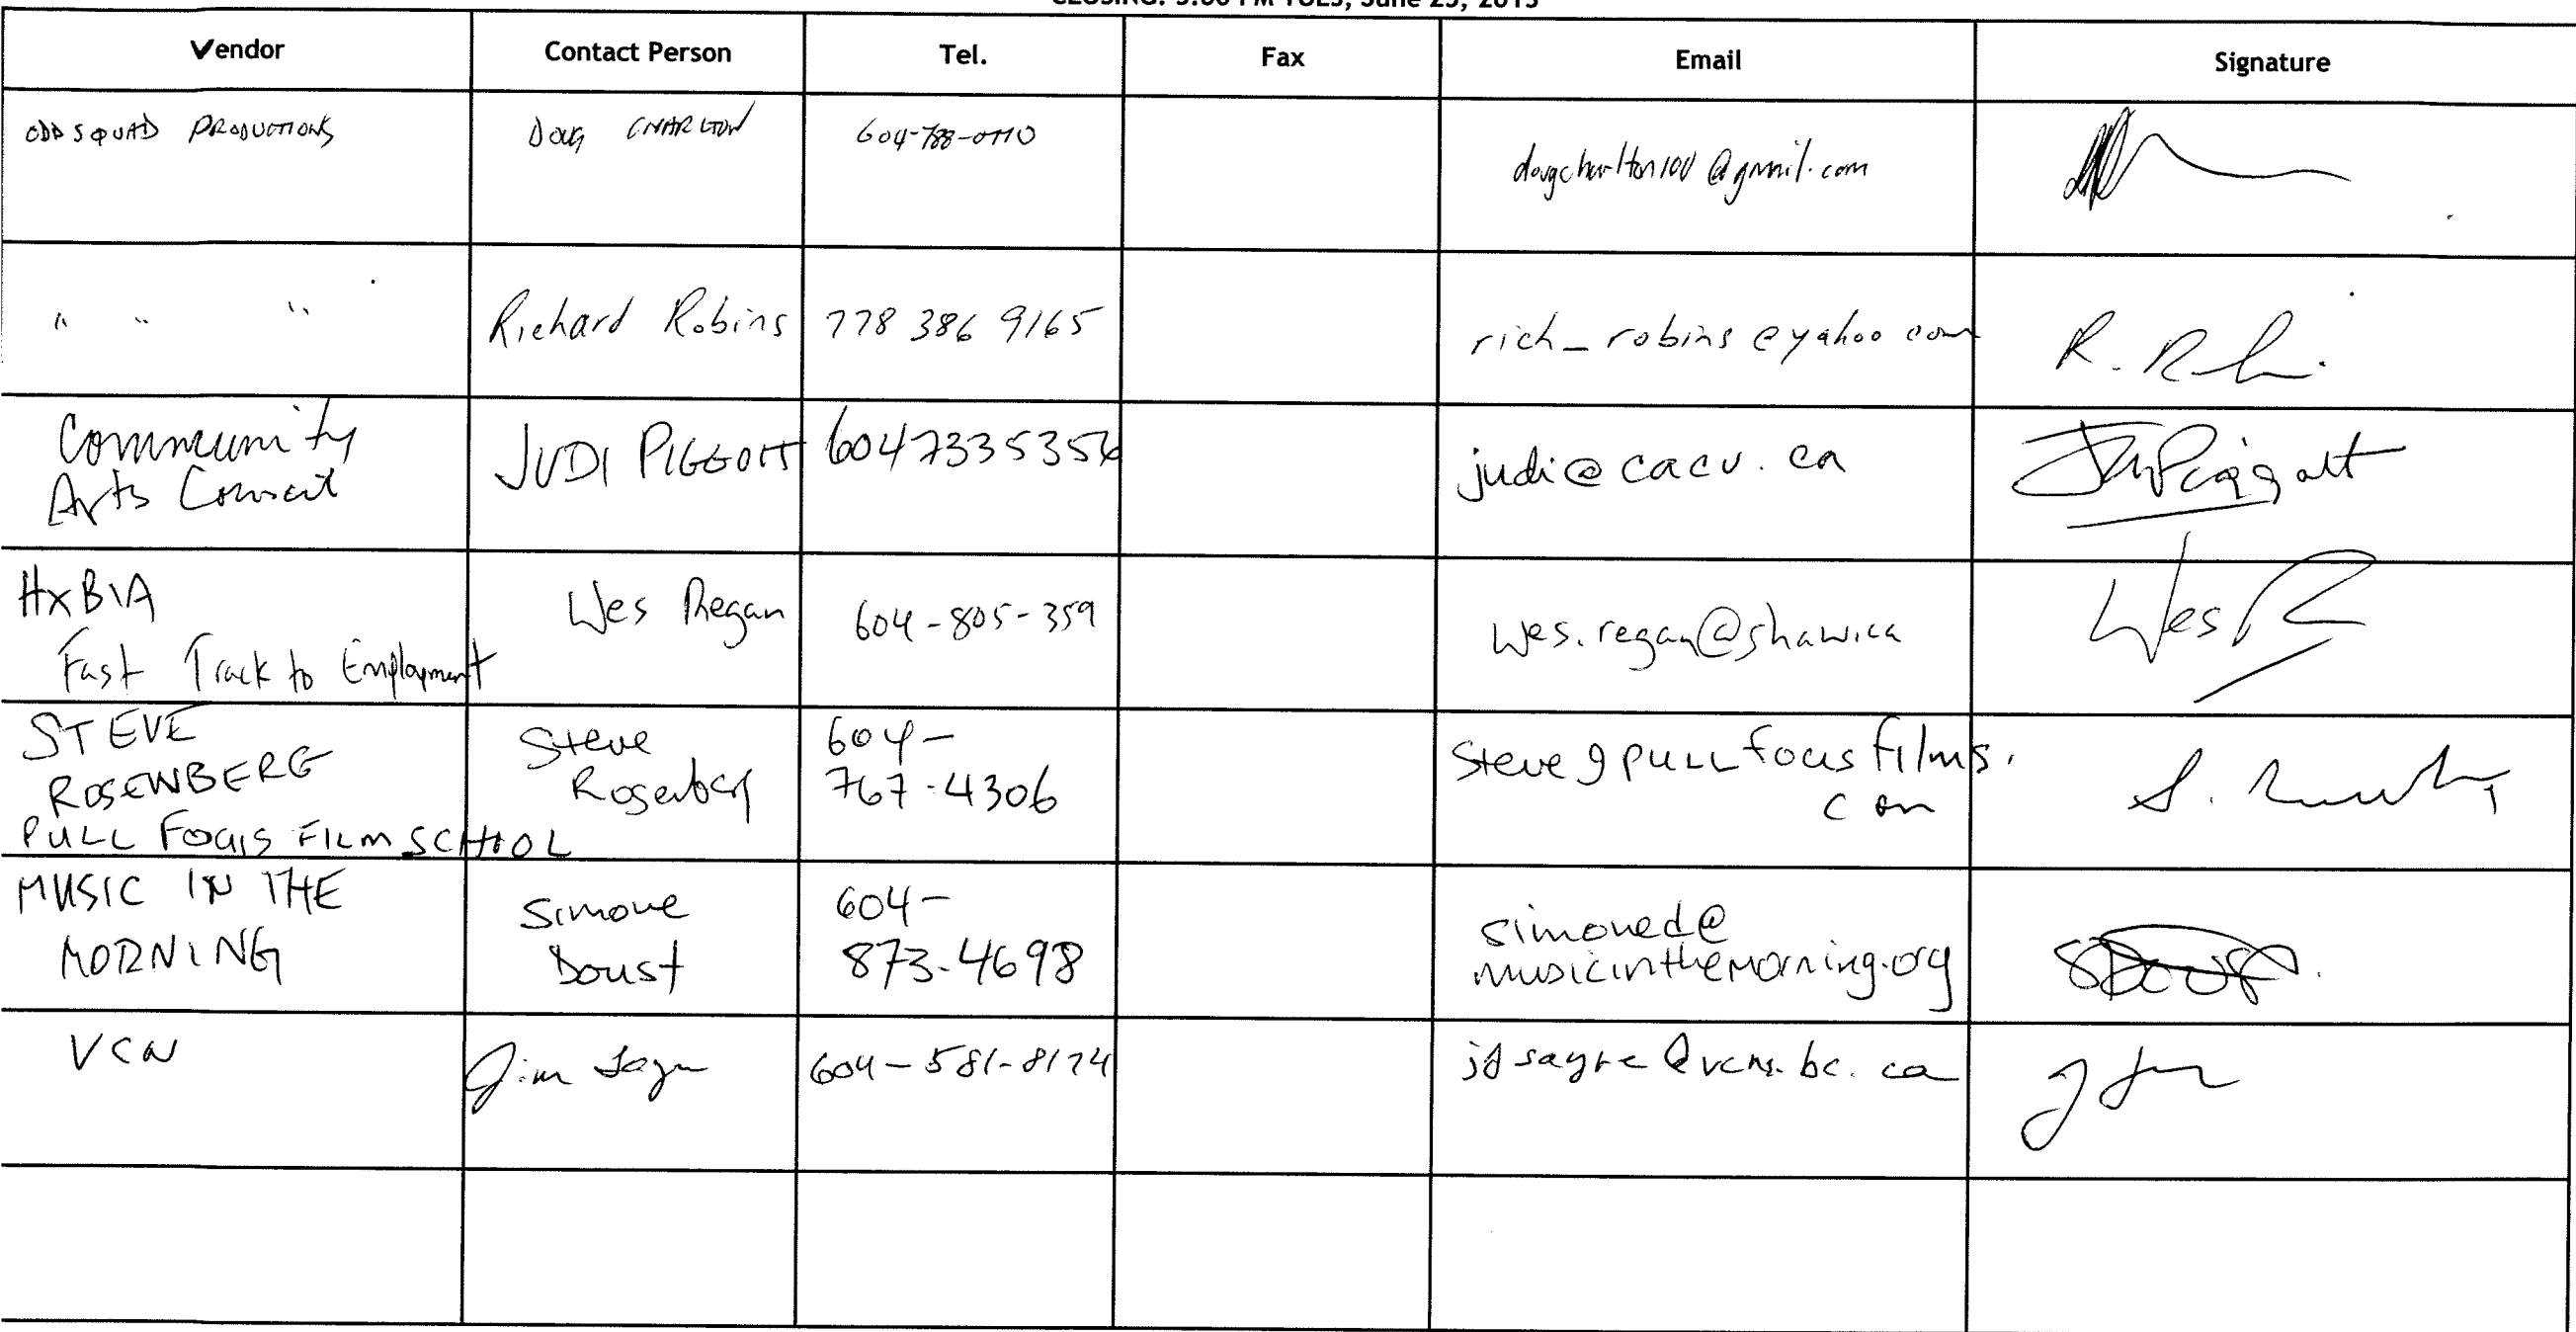 Vendor Contact Person Tel. Fax Email Signature
ODD SQUAD PRODUCTIONS DOUG CHARLTON 604-788-0110
dougcharlton100@gmail.com
" " " Richard Robins 778 386 9165 rich_robins@yahoo com R. R
Community
Arts Council JUDI PIGGOTT 6047335356 judi@cacv.ca J Piggott
HxBIA
Fast Track to Employment Wes Regan 604-805-359 wes.regan@shaw.ca Wes R
STEVE
ROSENBERG
PULL FOCUS FILM SCHOOL
Steve
Rosenberg
604-
767-4306
Steve@pullfocusfilms.
com
S.
MUSIC IN THE
MORNING
Simone
Doust
604-
873-4698
simoned@
musicinthemorning.org
SDoust
VCN Jim Sayre 604-581-8174 jdsayre@vcn.bc.ca J